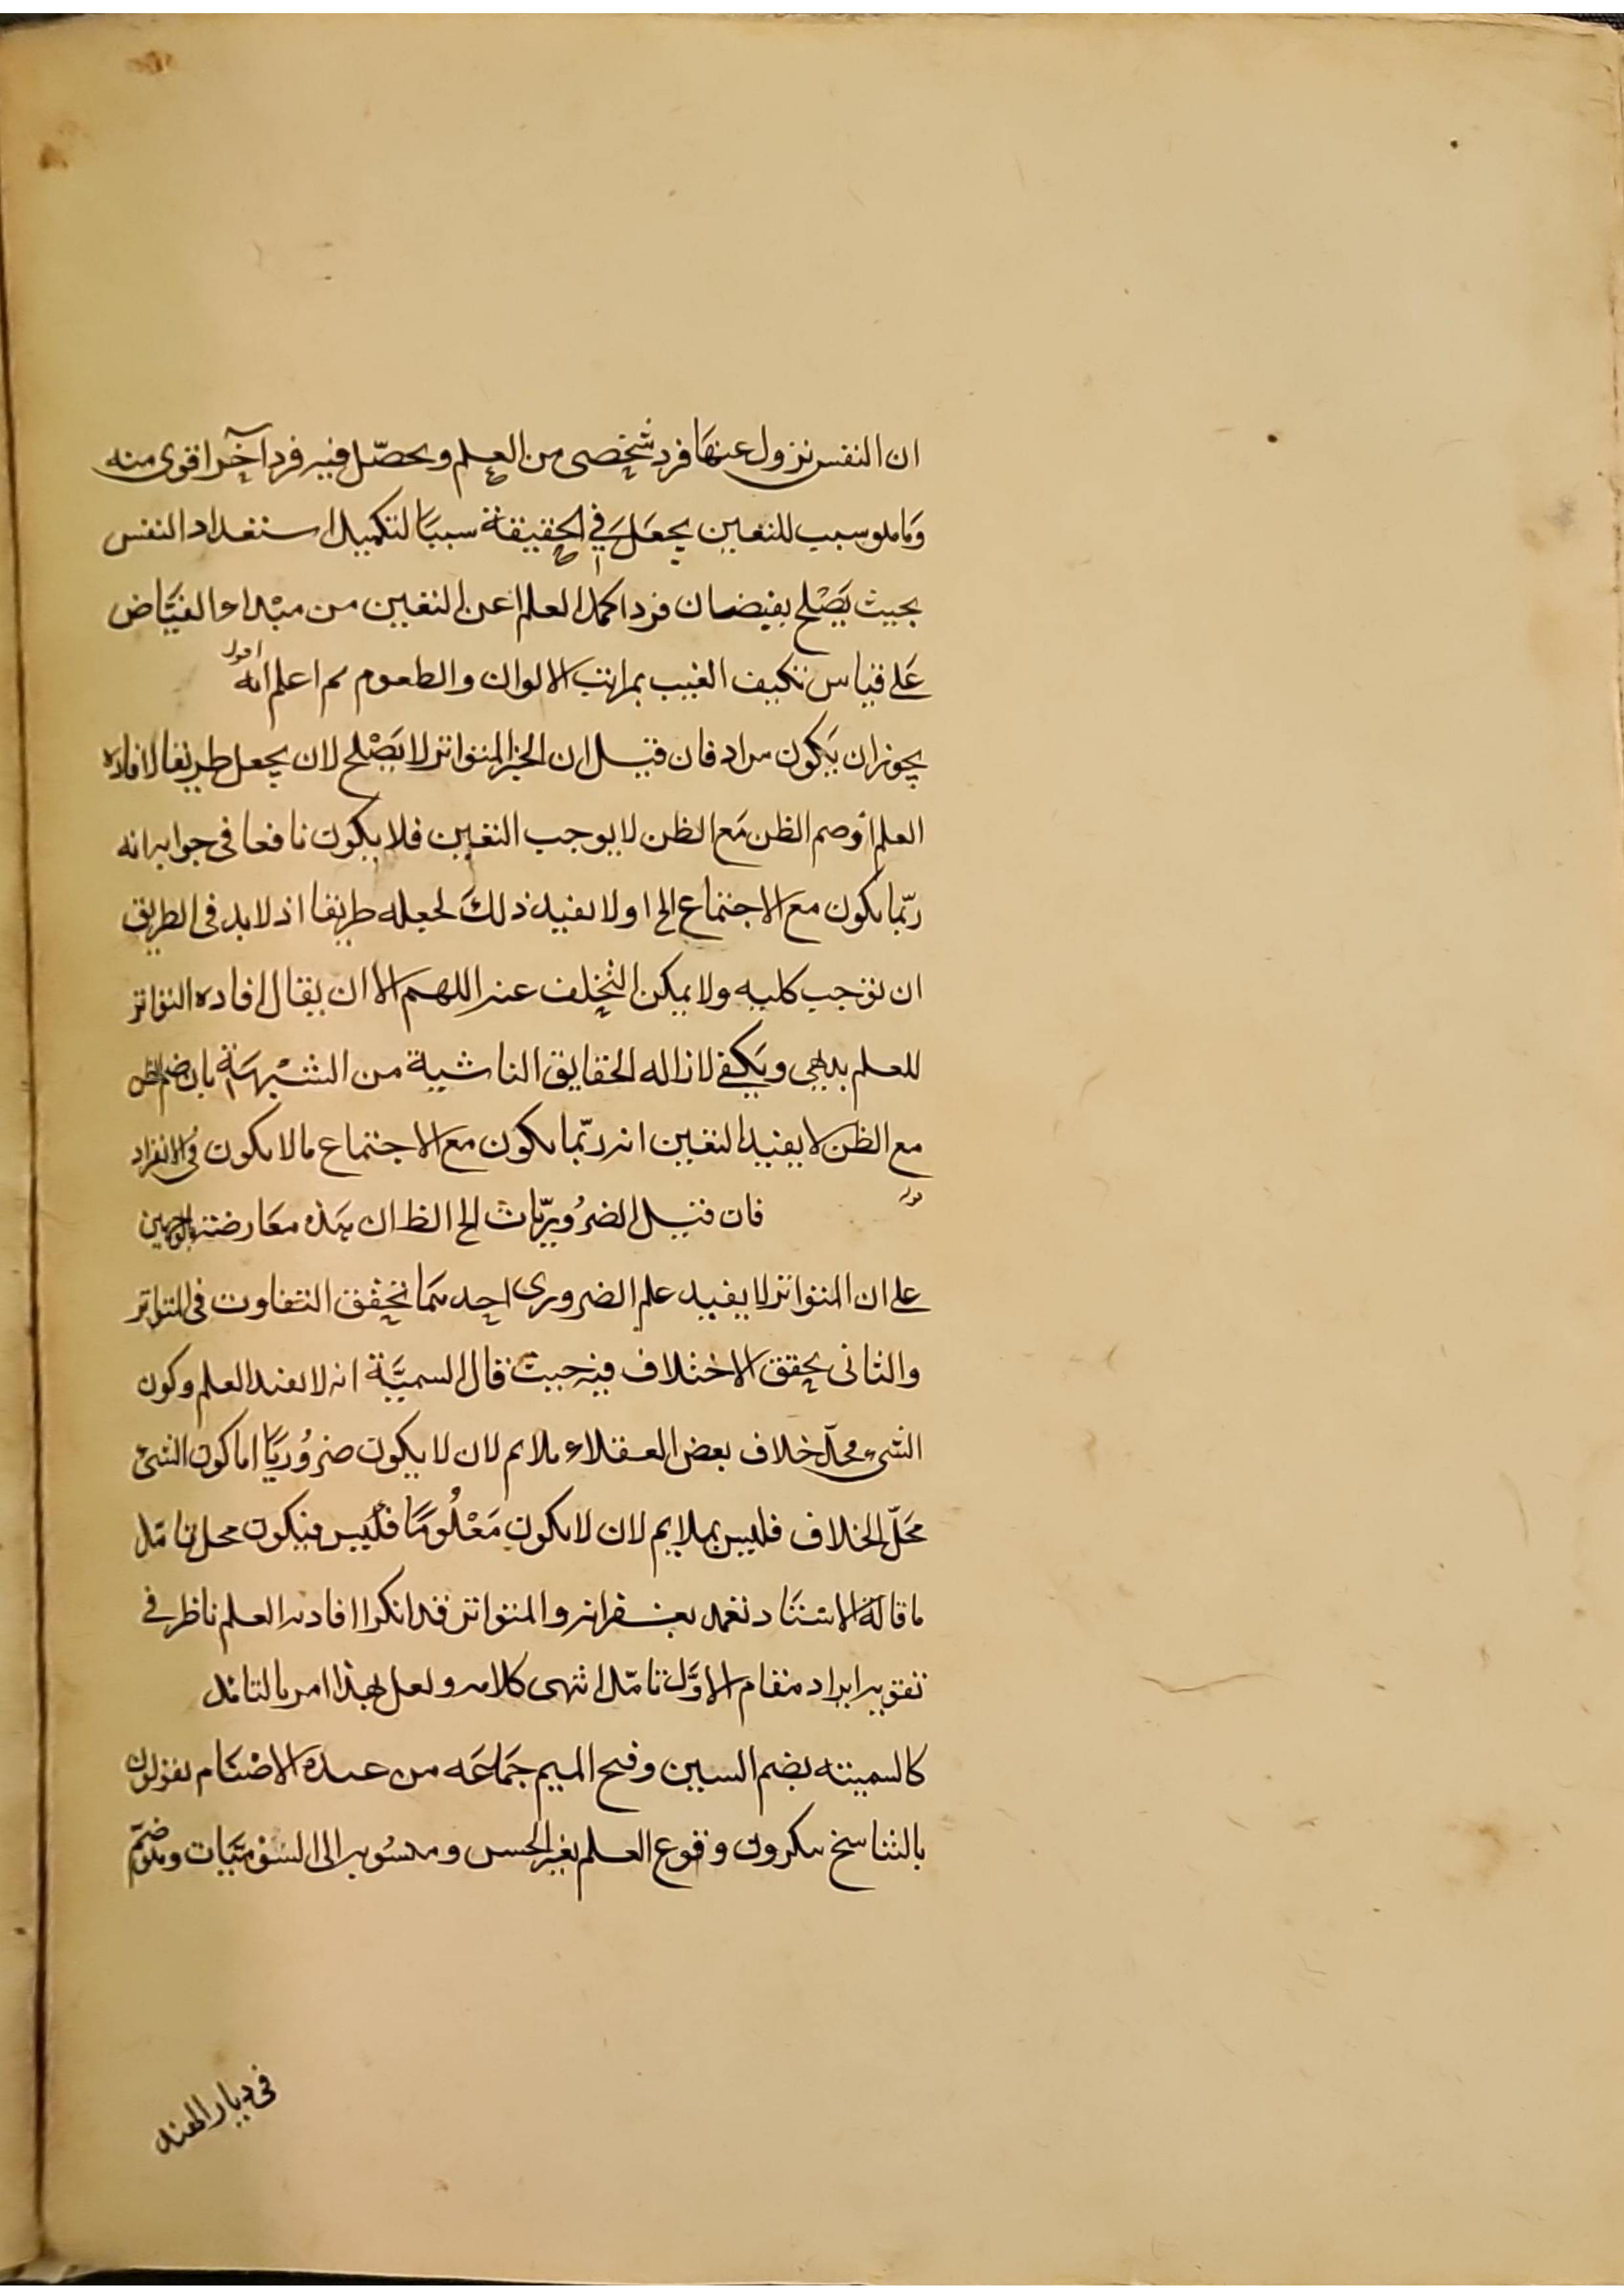 ان النفس نزول عنها فرد شخصى من العلم ويحصّل فيه فرد آخر اقوى منه
وما هو سبب لليقين يجعل في الحقيقة سببا لتكميل استعداد النفس
بحيث يَصْلح بفيضان فرد اكمل العلم اعن اليقين من مبْداء الفيّاض
عَلے قياس تكيف العنب بمراتب الالوان والطعوم ثم اعلم انه
اقول
يجوز ان يكون مراد فان قيل ان الخبر المتواتر لا يَصْلح لان يجعل طريقا لافاده
العلم اذ ضم الظن مَع الظن لا يوجب اليقين فلا يكون نافعا فى جوابه انه
ربّما يكون مع الاجتماع الخ اولا يفيد ذلك لجعله طريقا اذ لا بد فى الطريق
ان توجب كليه ولا يمكن التخلف عنه اللهم الا ان يقال افاده التواتر
للعلم بديهى ويكفے لازاله الحقايق الناشية من الشبْهَة بان ضم الظن
مع الظن لا يفيد اليقين انه ربّما يكون مع الاجتماع ما لا يكون فى الانفراد
قوله
فان قيل الضرُوريّات الخ الظ ان هَذه معَارضته بالوجهين
علے ان المتواتر لا يفيد علم الضرورى احدهمَا تحقق التفاوت فى المتواتر
والثانى تحقق الاختلاف فيه حيث قال السميَّة انه لا يفيد العلم وكون
الشىء محلّ خلاف بعض العقلاء ملايم لان لا يكون ضرُوريّا اما كون الشئ
محَلّ الخلاف فليس بملايم لان لا يكون مَعْلُومًا فليس فيكون محل تامّل
ما قاله الاسْتَاد نغمد بغفرانه والمتواتر قد انكر افادته العلم ناظر فے
تقويه ايراد مقام الاوّل تامّل انتهى كلامه ولعل لهذا امر بالتامل
كالسمينه بضم السين وفتح الميم جمَاعَه من عبدة الاصْنَام يقولون
بالتناسخ ينكرون وقوع العلم بغير الحس ومنسُوبه الى السُوْمنَيات وهو ضمّ
فى ديار الهند